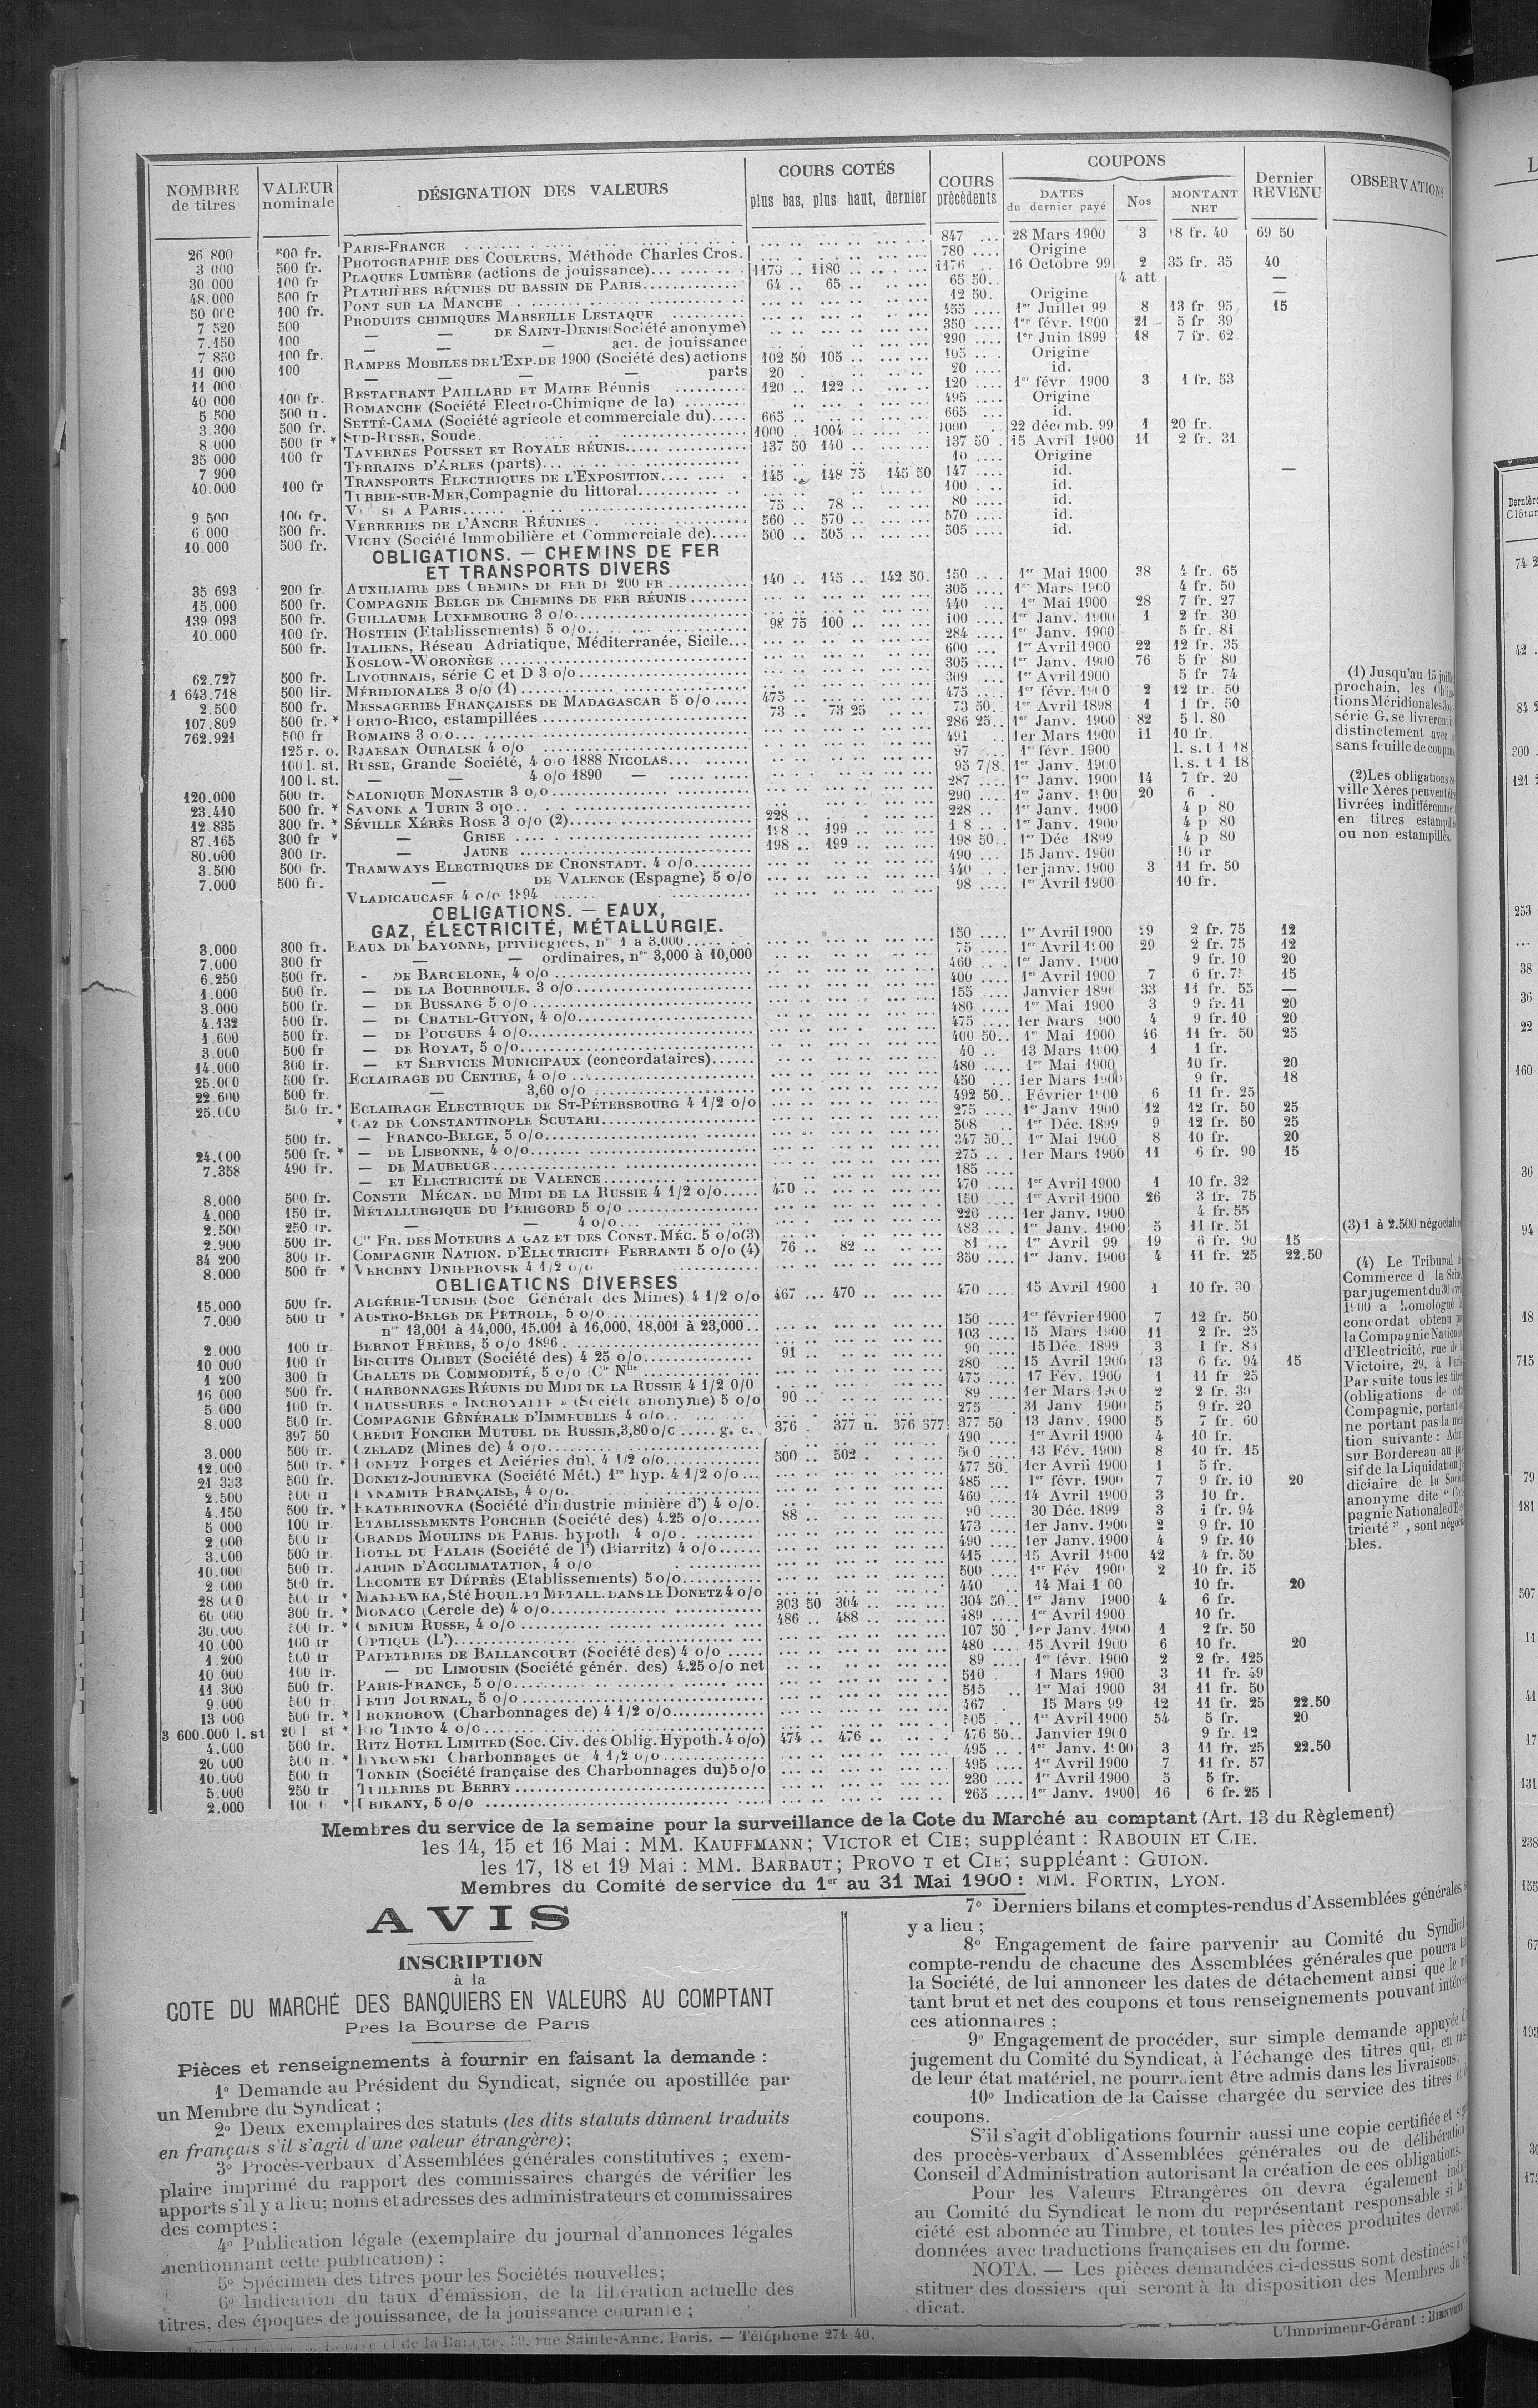 NOMBRE de titres | VALEUR nominale | DÉSIGNATION DES VALEURS | COURS COTÉS plus bas, plus haut, dernier | COURS précédents | COUPONS DATES du dernier payé | Nos | MONTANT NET | Dernier REVENU | OBSERVATIONS
26 800 500 fr. PARIS-FRANCE 847 28 Mars 1900 3 69 50
3 000 500 fr. PHOTOGRAPHIE DES COULEURS, Méthode Charles Cros. 780 Origine
30 000 100 fr PLAQUES LUMIÈRE (actions de jouissance) 1170 1180 1176 16 Octobre 99 2 35 fr. 35 40
48.000 500 fr PLATRIÈRES RÉUNIES DU BASSIN DE PARIS 64 65 65 50 4 att —
50 000 100 fr. PONT SUR LA MANCHE 12 50 Origine —
7 520 500 PRODUITS CHIMIQUES MARSEILLE LESTAQUE 1er Juillet 99 8 13 fr 95 15
7.150 100 — — DE SAINT-DENIS (Société anonyme) 350 1er févr. 1900 21 5 fr 39
7 850 100 fr. — — — act. de jouissance 290 1er Juin 1899 18 7 fr. 62
11 000 100 RAMPES MOBILES DE L'EXP. DE 1900 (Société des) actions 102 50 105 105 Origine
11 000 — — — — parts 20 20 id.
40 000 100 fr. RESTAURANT PAILLARD ET MAIRE Réunis 120 122 120 1er févr 1900 3 1 fr. 53
5 500 500 fr. ROMANCHE (Société Electro-Chimique de la) 495 Origine
3.300 500 fr. SETTÉ-CAMA (Société agricole et commerciale du) 665 665 id.
8 000 500 fr * SUD-RUSSE, Soude 1000 1004 1000 22 décemb. 99 1 20 fr.
35 000 100 fr TAVERNES POUSSET ET ROYALE RÉUNIS 137 50 140 137 50 15 Avril 1900 11 2 fr. 31
7 900 TERRAINS D'ARLES (parts) 10 Origine
40.000 100 fr TRANSPORTS ELECTRIQUES DE L'EXPOSITION 145 148 75 145 50 147 id. —
TURBIE-SUR-MER, Compagnie du littoral 100 id.
9 500 100 fr. A PARIS 75 78 80 id.
6 000 500 fr. VERRERIES DE L'ANCRE RÉUNIES 560 570 570 id.
10.000 500 fr. VICHY (Société Immobilière et Commerciale de) 500 505 505 id.
OBLIGATIONS. — CHEMINS DE FER
ET TRANSPORTS DIVERS
35 693 200 fr. AUXILIAIRE DES CHEMINS DE FER DE 200 FR 140 145 142 50 150 1er Mai 1900 38 4 fr. 65
15.000 500 fr. COMPAGNIE BELGE DE CHEMINS DE FER RÉUNIS 305 1er Mars 1900 4 fr. 50
139 093 500 fr. GUILLAUME LUXEMBOURG 3 o/o 440 1er Mai 1900 28 7 fr. 27
10.000 100 fr. HOSTEIN (Etablissements) 5 o/o 98 75 100 100 1er Janv. 1900 1 2 fr. 30
500 fr. ITALIENS, Réseau Adriatique, Méditerranée, Sicile 284 1er Janv. 1900 5 fr. 81
KOSLOW-WORONÈGE 600 1er Avril 1900 22 12 fr. 35
62.727 500 fr. LIVOURNAIS, série C et D 3 o/o 305 1er Janv. 1900 76 5 fr 80
1 643.718 500 lir. MÉRIDIONALES 3 o/o (1) 309 1er Avril 1900 5 fr 74
2.500 500 fr. MESSAGERIES FRANÇAISES DE MADAGASCAR 5 o/o 475 475 1er févr. 1900 2 12 fr. 50
107.809 500 fr. * PORTO-RICO, estampillées 73 73 25 73 50 1er Avril 1898 1 1 fr. 50
762.921 500 fr ROMAINS 3 o/o 286 25 1er Janv. 1900 82 5 l. 80
125 r. o. RJAESAN OURALSK 4 o/o 491 1er Mars 1900 11 10 fr.
100 l. st. RUSSE, Grande Société, 4 o/o 1888 NICOLAS 97 1er févr. 1900 l. s. t 1 18
100 l. st. — — 4 o/o 1890 — 95 7/8 1er Janv. 1900 l. s. t 1 18
120.000 500 fr. SALONIQUE MONASTIR 3 o/o 287 1er Janv. 1900 14 7 fr. 20
23.410 500 fr. * SAVONE A TURIN 3 o/o 290 1er Janv. 1900 20 6
12 835 300 fr. * SÉVILLE XÉRÈS ROSE 3 o/o (2) 228 228 1er Janv. 1900 4 p 80
87.165 300 fr * — GRISE 198 199 1er Janv. 1900 4 p 80
80.000 300 fr. — JAUNE 198 199 198 50 1er Déc 1899 4 p 80
3.500 500 fr. TRAMWAYS ELECTRIQUES DE CRONSTADT. 4 o/o 490 15 Janv. 1900
7.000 500 fr. — DE VALENCE (Espagne) 5 o/o 440 1er janv. 1900 3 11 fr. 50
VLADICAUCASE 4 o/o 1894 98 1er Avril 1900 10 fr.
OBLIGATIONS. — EAUX,
GAZ, ÉLECTRICITÉ, MÉTALLURGIE.
3.000 300 fr. EAUX DE BAYONNE, privilégiées, nos 1 à 3,000 150 1er Avril 1900 29 2 fr. 75 12
7.000 300 fr — — ordinaires, nos 3,000 à 10,000 75 1er Avril 1900 29 2 fr. 75 12
6.250 500 fr. — DE BARCELONE, 4 o/o 460 1er Janv. 1900 9 fr. 10 20
1.000 500 fr. — DE LA BOURBOULE, 3 o/o 400 1er Avril 1900 7 6 fr. 75 15
3.000 500 fr. — DE BUSSANG 5 o/o 155 Janvier 1896 33 11 fr. 55 —
4.132 500 fr. — DE CHATEL-GUYON, 4 o/o 480 1er Mai 1900 3 9 fr. 11 20
1.600 500 fr. — DE POUGUES 4 o/o 475 1er Mars 1900 4 9 fr. 10 20
3.000 500 fr — DE ROYAT, 5 o/o 400 50 1er Mai 1900 46 11 fr. 50 25
14.000 300 fr. — ET SERVICES MUNICIPAUX (concordataires) 40 13 Mars 1900 1 1 fr.
25.000 500 fr. ECLAIRAGE DU CENTRE, 4 o/o 480 1er Mai 1900 10 fr. 20
22.600 500 fr. — 3,60 o/o 450 1er Mars 1900 9 fr. 18
25.000 500 fr. * ECLAIRAGE ELECTRIQUE DE ST-PÉTERSBOURG 4 1/2 o/o 492 50 Février 1900 6 11 fr. 25
* GAZ DE CONSTANTINOPLE SCUTARI 275 1er Janv 1900 12 12 fr. 50 25
500 fr. — FRANCO-BELGE, 5 o/o 508 1er Déc. 1899 9 12 fr. 50 25
24.000 500 fr. * — DE LISBONNE, 4 o/o 347 50 1er Mai 1900 8 10 fr. 20
7.358 490 fr. — DE MAUBEUGE 275 1er Mars 1900 11 6 fr. 90 15
— ET ELECTRICITÉ DE VALENCE 185
8.000 500 fr. CONSTR MÉCAN. DU MIDI DE LA RUSSIE 4 1/2 o/o 470 470 1er Avril 1900 1 10 fr. 32
4.000 150 fr. MÉTALLURGIQUE DU PÉRIGORD 5 o/o 150 1er Avril 1900 26 3 fr. 75
2.500 250 fr. — — 4 o/o 220 1er Janv. 1900 4 fr. 55
2.900 500 fr. Cie FR. DES MOTEURS A GAZ ET DES CONST. MÉC. 5 o/o (3) 483 1er Janv. 1900 5 11 fr. 51
34 200 300 fr. COMPAGNIE NATION. D'ELECTRICITÉ FERRANTI 5 o/o (4) 76 82 81 1er Avril 99 19 6 fr. 90 15
8.000 500 fr * VERCHNY DNIEPROVSK 4 1/2 o/o 350 1er Janv. 1900 4 11 fr. 25 22.50
OBLIGATIONS DIVERSES
15.000 500 fr. ALGÉRIE-TUNISIE (Soc Générale des Mines) 4 1/2 o/o 467 470 470 15 Avril 1900 1 10 fr. 30
7.000 500 fr * AUSTRO-BELGE DE PÉTROLE, 5 o/o
nos 13,001 à 14,000, 15,001 à 16,000, 18,001 à 23,000 150 1er février 1900 7 12 fr. 50
2.000 100 fr. BERNOT FRÈRES, 5 o/o 1896 103 15 Mars 1900 11 2 fr. 25
10 000 100 fr BISCUITS OLIBET (Société des) 4 25 o/o 91 90 15 Déc 1899 3
1 200 300 fr CHALETS DE COMMODITÉ, 5 o/o (Cie Nlle 280 15 Avril 1900 13 6 fr. 94 15
16 000 500 fr. CHARBONNAGES RÉUNIS DU MIDI DE LA RUSSIE 4 1/2 0/0 475 17 Fév. 1900 1 11 fr 25
5 000 100 fr. CHAUSSURES « INCROYABLE » (Société anonyme) 5 o/o 90 89 1er Mars 1900 2 2 fr. 39
8.000 500 fr. COMPAGNIE GÉNÉRALE D'IMMEUBLES 4 o/o 275 31 Janv 1900 5 9 fr. 20
397 50 CRÉDIT FONCIER MUTUEL DE RUSSIE, 3,80 o/o g. c. 376 377 u. 376 377 377 50 13 Janv. 1900 5 7 fr. 60
3.000 500 fr. CZELADZ (Mines de) 4 o/o 490 1er Avril 1900 4 10 fr.
12.000 500 fr. * DONETZ Forges et Aciéries du). 4 1/2 o/o 500 502 500 13 Fév. 1900 8 10 fr. 15
21 333 500 fr. DONETZ-JOURIEVKA (Société Mét.) 1re hyp. 4 1/2 o/o 477 50 1er Avril 1900 1 5 fr.
2.500 500 fr DYNAMITE FRANÇAISE, 4 o/o 485 1er févr. 1900 7 9 fr. 10 20
4.150 500 fr. * EKATERINOVKA (Société d'industrie minière d') 4 o/o 460 14 Avril 1900 3 10 fr.
5 000 100 fr. ETABLISSEMENTS PORCHER (Société des) 4.25 o/o 88 90 30 Déc. 1899 3 1 fr. 94
2.000 500 fr GRANDS MOULINS DE PARIS. hypoth 4 o/o 473 1er Janv. 1900 2 9 fr. 10
3.000 500 fr. HOTEL DU PALAIS (Société de l') (Biarritz) 4 o/o 490 1er Janv. 1900 4 9 fr. 10
10.000 500 fr. JARDIN D'ACCLIMATATION, 4 o/o 415 15 Avril 1900 42 4 fr. 50
2 000 500 fr. LECOMTE ET DÉPRÈS (Etablissements) 5 o/o 500 1er Fév 1900 2 10 fr. 15
28 000 500 fr * MAKEEWKA, Sté HOUIL. ET METALL. DANS LE DONETZ 4 o/o 440 14 Mai 1 00 10 fr. 20
60 000 300 fr. * MONACO (Cercle de) 4 o/o 303 50 304 304 50 1er Janv 1900 4 6 fr.
30.000 500 fr. * OMNIUM RUSSE, 4 o/o 486 488 489 1er Avril 1900 10 fr.
10 000 100 fr OPTIQUE (L') 107 50 1er Janv. 1900 1 2 fr. 50
1.200 500 fr PAPETERIES DE BALLANCOURT (Société des) 4 o/o 480 15 Avril 1900 6 10 fr. 20
10 000 100 fr. — DU LIMOUSIN (Société génér. des) 4.25 o/o net 89 1er févr. 1900 2 2 fr. 125
11 300 500 fr. PARIS-FRANCE, 5 o/o 510 1 Mars 1900 3 11 fr. 49
9 000 500 fr PETIT JOURNAL, 5 o/o 515 1er Mai 1900 31 11 fr. 50
13 000 500 fr. * PROKHOROW (Charbonnages de) 4 1/2 o/o 467 15 Mars 99 12 11 fr. 25 22.50
3 600.000 l. st 20 l st * RIO TINTO 4 o/o 505 1er Avril 1900 54 5 fr. 20
4.000 500 fr. RITZ HOTEL LIMITED (Soc. Civ. des Oblig. Hypoth. 4 o/o) 474 476 476 50 Janvier 1900 9 fr. 12
20 000 500 fr. * RYKOWSKI Charbonnages de 4 1/2 o/o 495 1er Janv. 1900 3 11 fr. 25 22.50
10.000 500 fr TONKIN (Société française des Charbonnages du) 5 o/o 495 1er Avril 1900 7 11 fr. 57
5.000 250 fr TUILERIES DU BERRY 230 1er Avril 1900 5 5 fr.
2.000 100 f * URIKANY, 5 o/o 263 1er Janv. 1900 16 6 fr. 25
(1) Jusqu'au 15 juillet
prochain, les
tions Méridionales
série G, se livreront
distinctement avec
sans feuille de coupons
(2) Les obligations
ville Xérès peuvent
livrées indifféremment
en titres estampillés
ou non estampillés.
(3) 1 à 2.500 négociables
(4) Le Tribunal de
Commerce de la Seine
par jugement du 30
1900 a homologué
concordat obtenu
la Compagnie Nationale
d'Electricité, rue de la
Victoire, 29, à
Par suite tous les titres
(obligations de cette
Compagnie, portant ou
ne portant pas la men-
tion suivante :
sur Bordereau au pas-
sif de la Liquidation ju-
diciaire de la Société
anonyme dite "
pagnie Nationale
tricité", sont négocia-
bles.
Membres du service de la semaine pour la surveillance de la Cote du Marché au comptant (Art. 13 du Règlement)
les 14, 15 et 16 Mai : MM. KAUFFMANN; VICTOR et CIE; suppléant : RABOUIN ET CIE.
les 17, 18 et 19 Mai : MM. BARBAUT; PROVO T et CIE; suppléant : GUION.
Membres du Comité de service du 1er au 31 Mai 1900 : MM. FORTIN, LYON.
AVIS
INSCRIPTION
à la
COTE DU MARCHÉ DES BANQUIERS EN VALEURS AU COMPTANT
Près la Bourse de Paris
Pièces et renseignements à fournir en faisant la demande :
1o Demande au Président du Syndicat, signée ou apostillée par
un Membre du Syndicat ;
2o Deux exemplaires des statuts (les dits statuts dûment traduits
en français s'il s'agit d'une valeur étrangère);
3o Procès-verbaux d'Assemblées générales constitutives ; exem-
plaire imprimé du rapport des commissaires chargés de vérifier les
apports s'il y a lieu; noms et adresses des administrateurs et commissaires
des comptes ;
4o Publication légale (exemplaire du journal d'annonces légales
mentionnant cette publication) ;
5o Spécimen des titres pour les Sociétés nouvelles;
6o Indication du taux d'émission, de la libération actuelle des
titres, des époques de jouissance, de la jouissance courante ;
7o Derniers bilans et comptes-rendus d'Assemblées générales,
y a lieu ;
8o Engagement de faire parvenir au Comité du Syndicat
compte-rendu de chacune des Assemblées générales que pourra
la Société, de lui annoncer les dates de détachement ainsi que le
tant brut et net des coupons et tous renseignements pouvant
ces ationnaires ;
9o Engagement de procéder, sur simple demande appuyée
jugement du Comité du Syndicat, à l'échange des titres qui, en
de leur état matériel, ne pourraient être admis dans les livraisons;
10o Indication de la Caisse chargée du service des titres et
coupons.
S'il s'agit d'obligations fournir aussi une copie certifiée et
des procès-verbaux d'Assemblées générales ou de
Conseil d'Administration autorisant la création de ces obligations.
Pour les Valeurs Etrangères on devra également
au Comité du Syndicat le nom du représentant responsable si la
ciété est abonnée au Timbre, et toutes les pièces produites devront
données avec traductions françaises en du forme.
NOTA. — Les pièces demandées ci-dessus sont destinées à
stituer des dossiers qui seront à la disposition des Membres du
dicat.
et de la Banque, 39, rue Sainte-Anne, Paris. — Téléphone 271 40.
L'Imprimeur-Gérant :